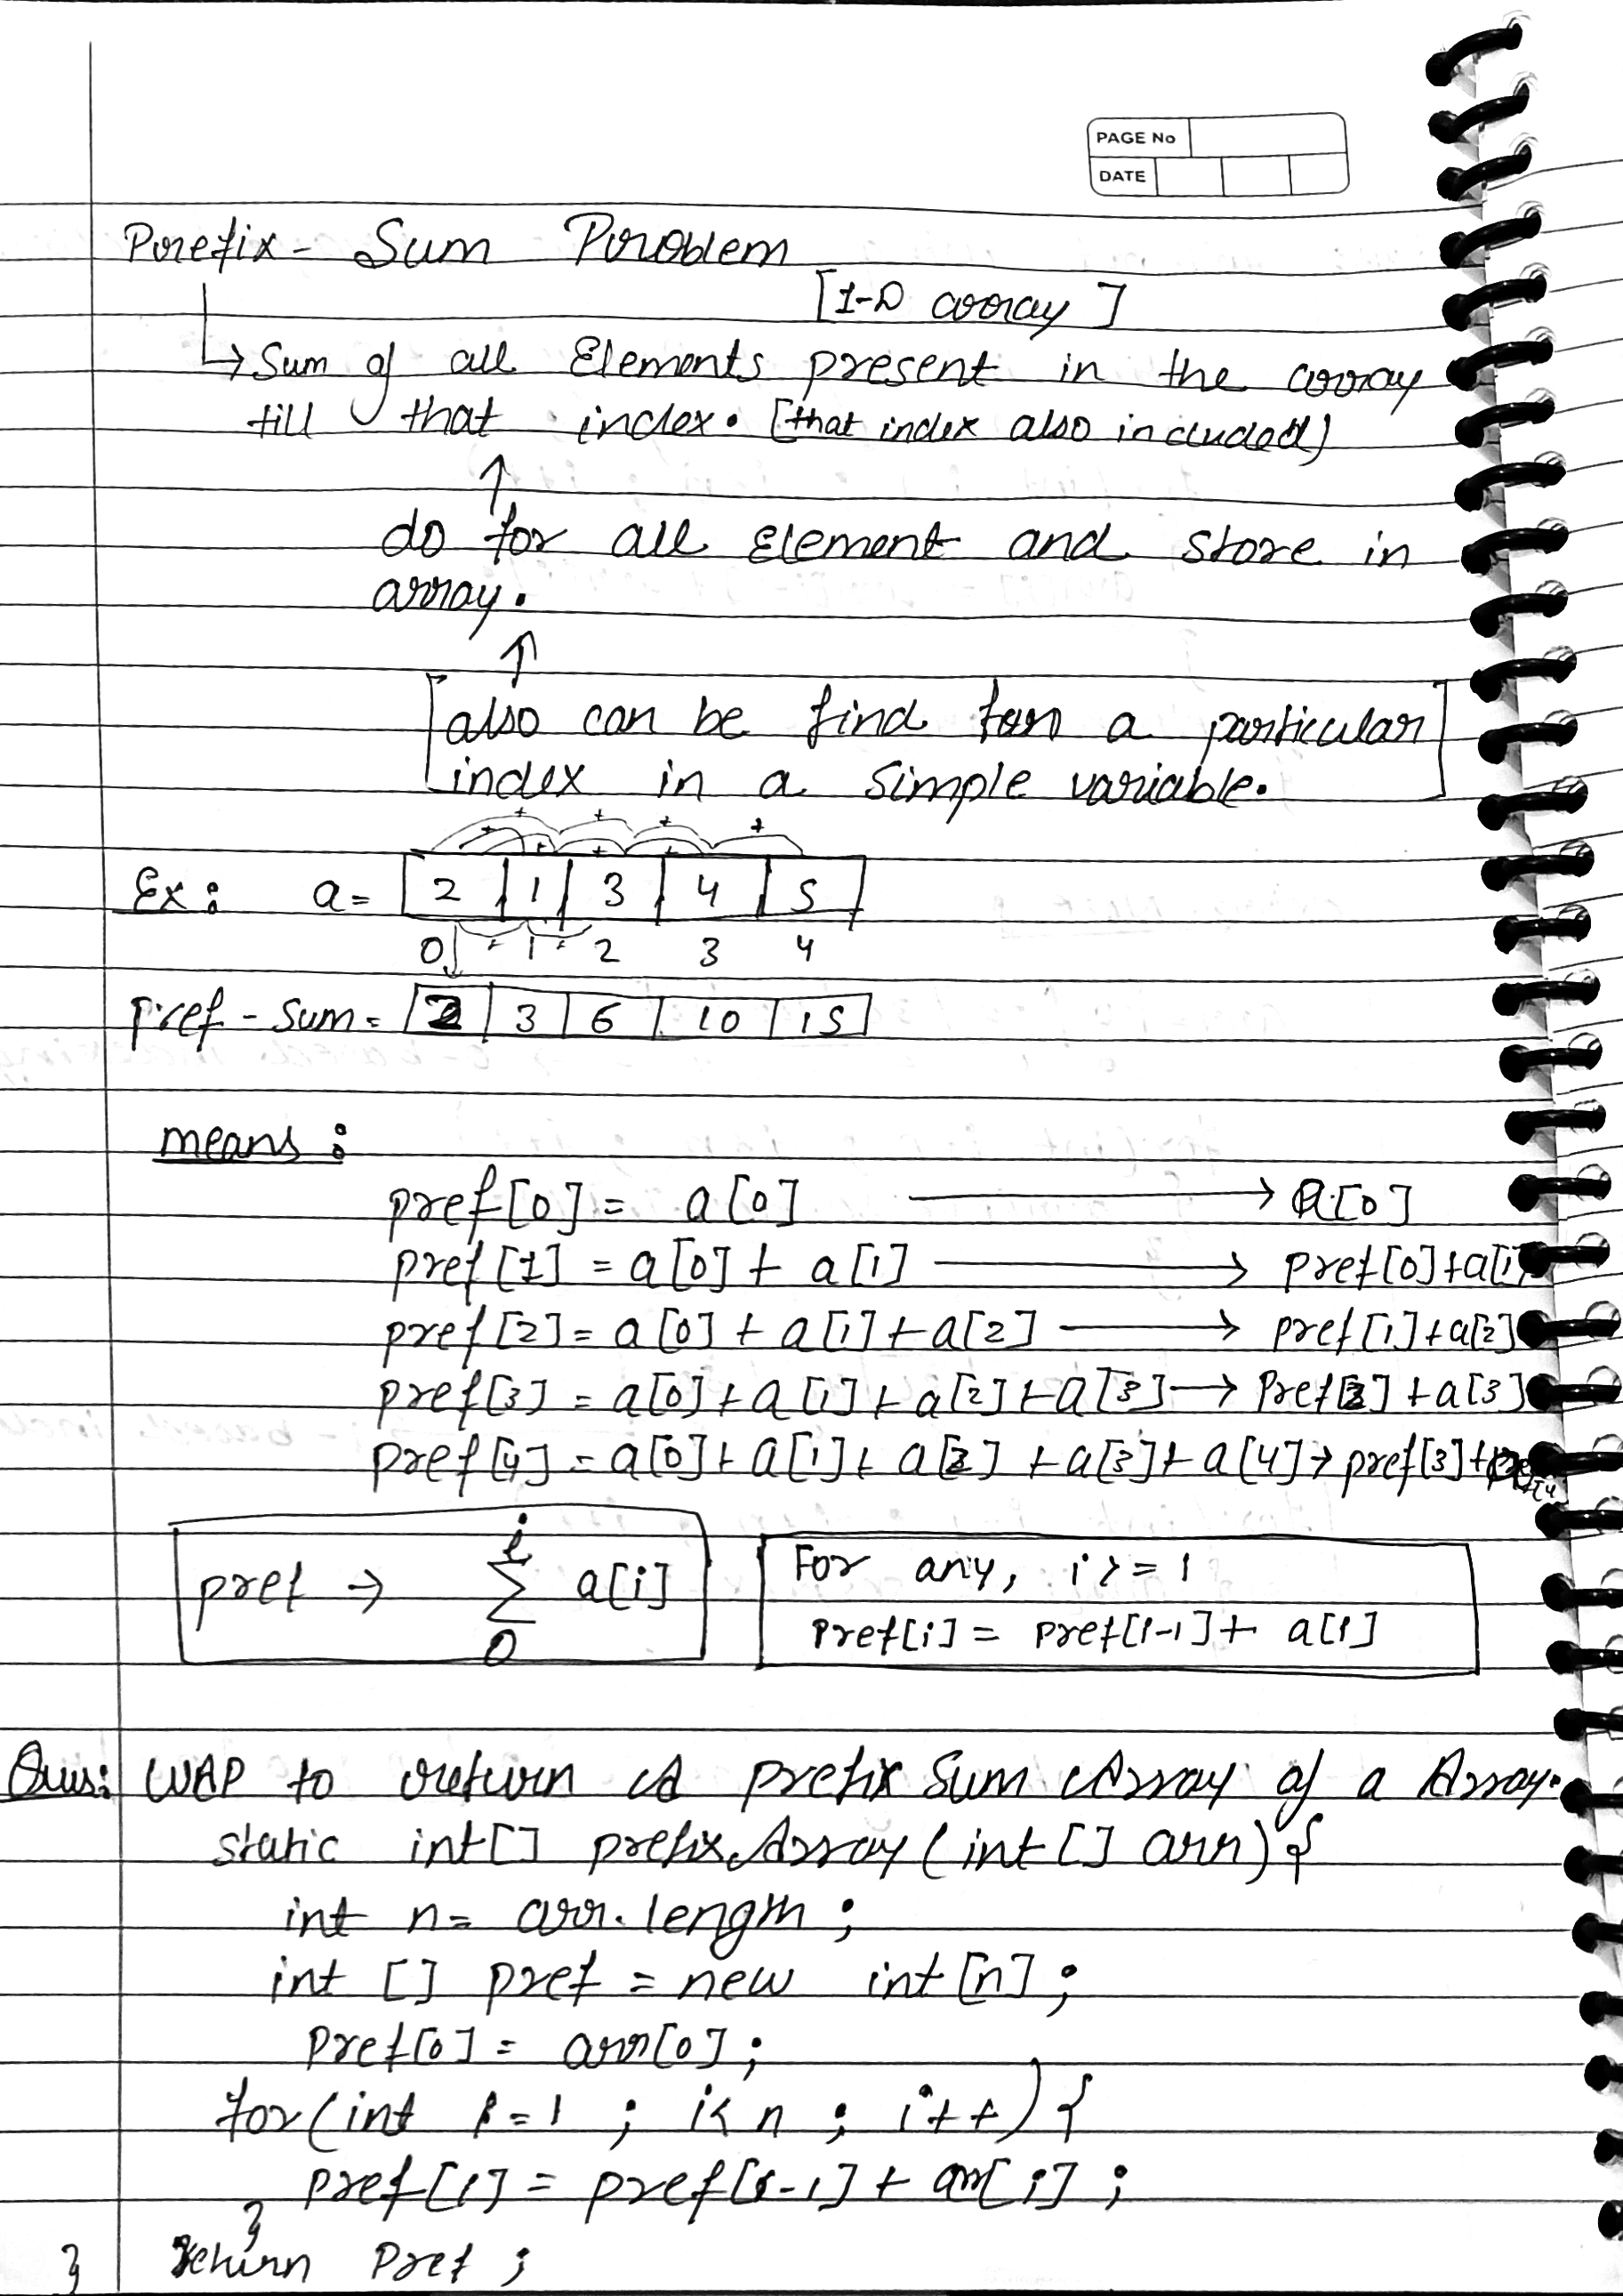 PAGE No
DATE
Prefix - Sum Problem
[1-D array]
↳ Sum of all Elements present in the array
till that index. [that index also included]
↑
do for all Element and store in
array.
↑
[also can be find for a particular
index in a simple variable.]
+ + + +
Ex: a = 2 1 3 4 5
0 1 2 3 4
Pref - Sum = 2 3 6 10 15
means:
pref[0] = a[0] → a[0]
pref[1] = a[0] + a[1] → pref[0]+a[1]
pref[2] = a[0] + a[1] + a[2] → pref[1]+a[2]
pref[3] = a[0]+a[1]+a[2]+a[3] → Pref[2]+a[3]
pref[4] = a[0]+a[1]+a[2]+a[3]+a[4] → pref[3]+
pref → i ∑ 0 a[i]
For any, i >= 1
Pref[i] = pref[i-1] + a[i]
Ques: WAP to return a prefix Sum Array of a Array.
static int[] prefixArray(int[] arr){
int n = arr.length;
int [] pref = new int[n];
Pref[0] = arr[0];
for(int i=1 ; i<n ; i++){
pref[i] = pref[i-1] + arr[i];
}
return Pref;
}